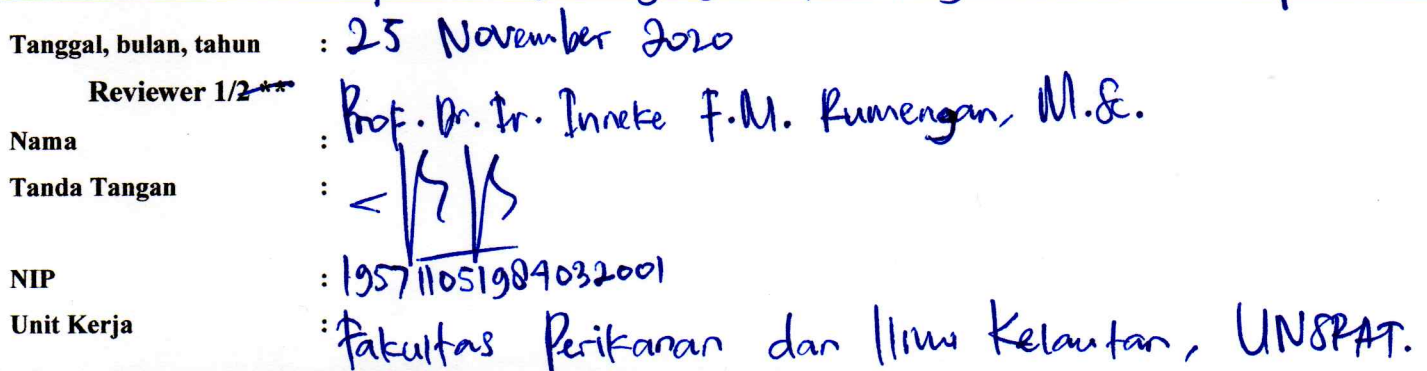 Tanggal, bulan, tahun : 25 November 2020
Reviewer 1/2 **
Nama : Prof. Dr. Ir. Inneke F.M. Rumengan, M.Sc.
Tanda Tangan :
NIP : 195711051984032001
Unit Kerja : Fakultas Perikanan dan Ilmu Kelautan, UNSRAT.